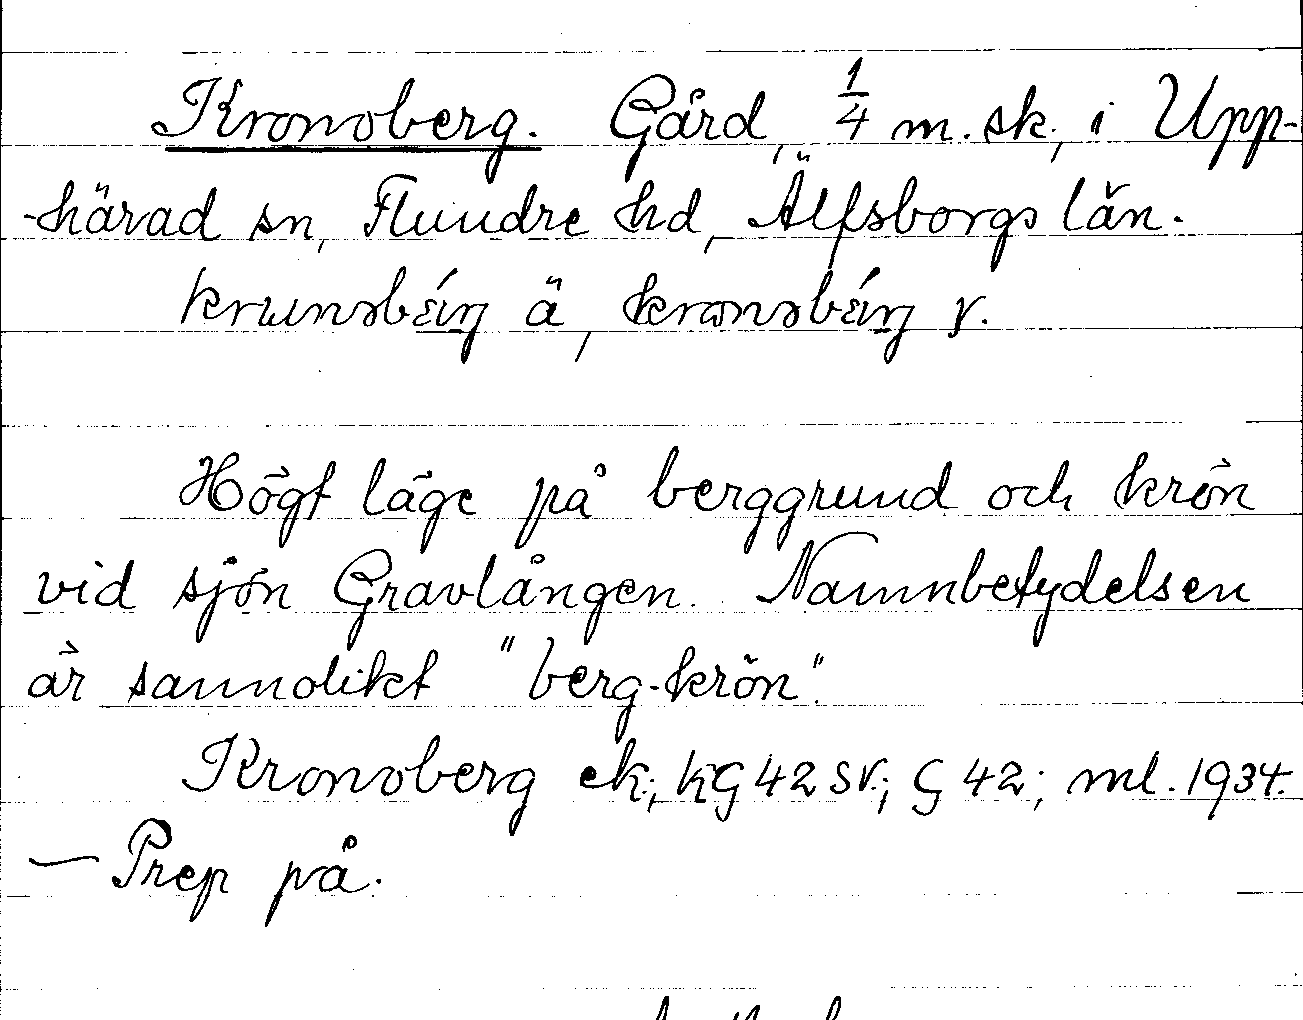 Kronoberg. Gård, 1/4 m. sk., i Upp-
-härad sn, Flundre hd, Älfsborgs län.
krunəbéıŋ ä, kronəbéıŋ y.
Högt läge på berggrund och krön
vid sjön Gravlången. Namnbetydelsen
är sannolikt "berg-krön".
Kronoberg ek.; kG 42 SV.; G 42; ml. 1934.
— Prep på.